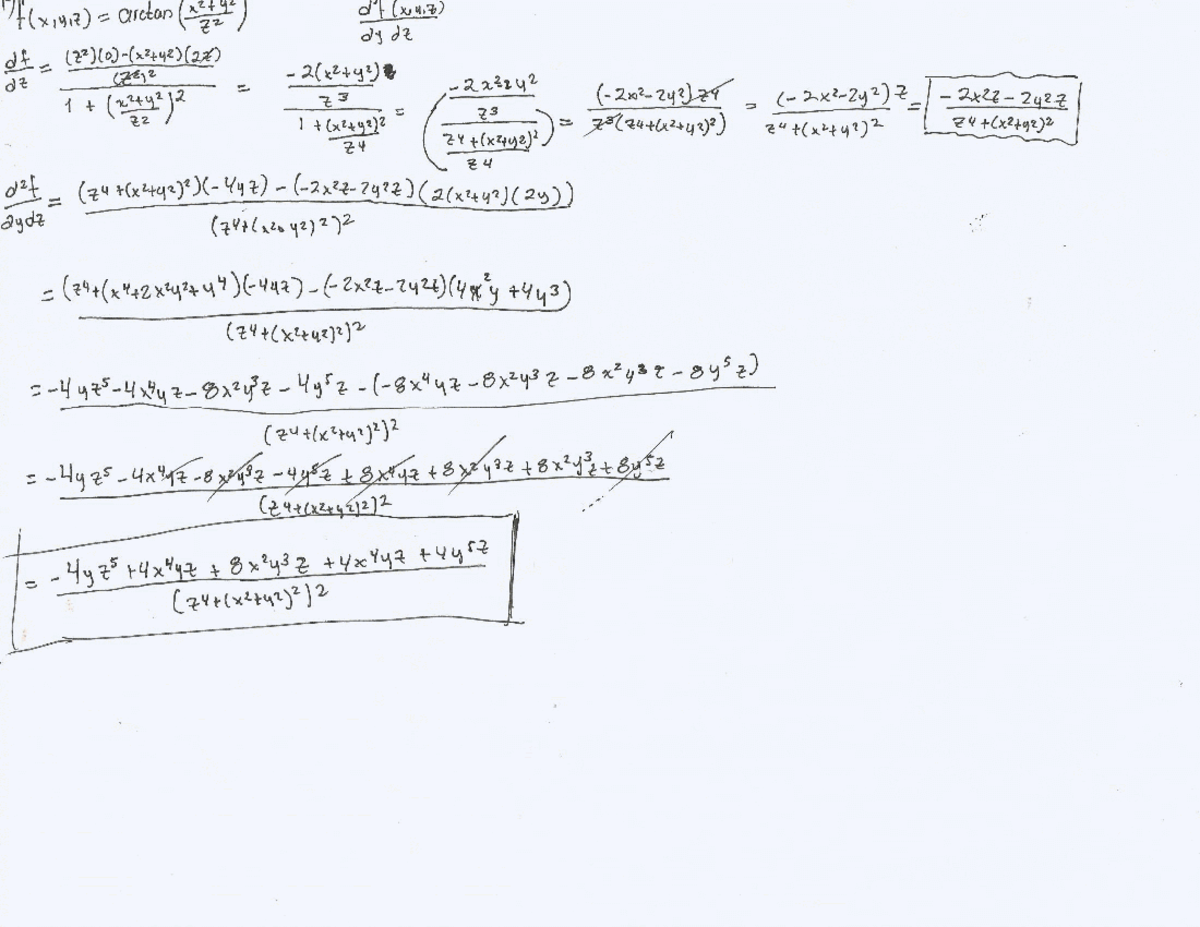 1) f(x,y,z) = arctan((x²+y²)/z²)    d²f(x,y,z)/dy dz
df/dz = (((z²)(0)-(x²+y²)(2z))/(z²)²)/(1 + ((x²+y²)/z²)²) = (-2(x²+y²)/z³)/(1+(x²+y²)²/z⁴) = ((-2x²-2y²)/z³)/((z⁴+(x²+y²)²)/z⁴) = (-2x²-2y²)z⁴/(z³(z⁴+(x²+y²)²)) = (-2x²-2y²)z/(z⁴+(x²+y²)²) = (-2x²z-2y²z)/(z⁴+(x²+y²)²)
d²f/dydz = ((z⁴+(x²+y²)²)(-4yz) - (-2x²z-2y²z)(2(x²+y²)(2y)))/(z⁴+(x²+y²)²)²
= ((z⁴+(x⁴+2x²y²+y⁴)(-4yz) - (-2x²z-2y²z)(4x²y+4y³))/(z⁴+(x²+y²)²)²
= (-4yz⁵-4x⁴yz-8x²y³z-4y⁵z-(-8x⁴yz-8x²y³z-8x²y³z-8y⁵z))/(z⁴+(x²+y²)²)²
= (-4yz⁵-4x⁴yz-8x²y³z-4y⁵z+8x⁴yz+8x²y³z+8x²y³z+8y⁵z)/(z⁴+(x²+y²)²)²
= (-4yz⁵+4x⁴yz+8x²y³z+4x⁴yz+4y⁵z)/(z⁴+(x²+y²)²)²